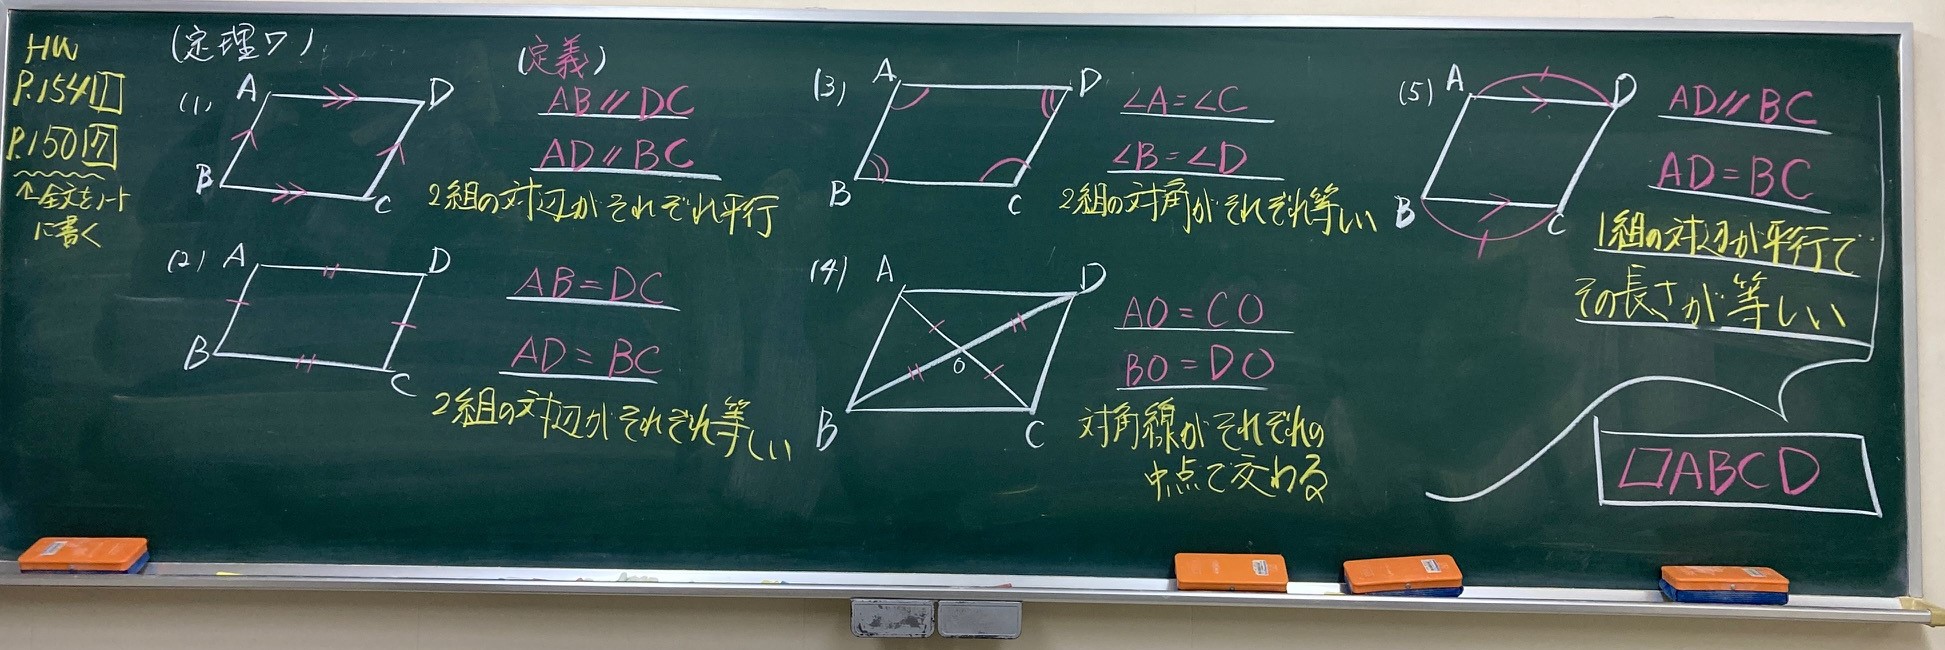 HW
P.154 1
P.150 7
↑全文をノート
に書く
(定理7)
(1)
A
D
B
C
(定義)
AB∥DC
AD∥BC
2組の対辺がそれぞれ平行
(2)
A
D
B
C
AB=DC
AD=BC
2組の対辺がそれぞれ等しい
(3)
A
D
B
C
∠A=∠C
∠B=∠D
2組の対角がそれぞれ等しい
(4)
A
D
O
B
C
AO=CO
BO=DO
対角線がそれぞれの
中点で交わる
(5)
A
D
B
C
AD∥BC
AD=BC
1組の対辺が平行で
その長さが等しい
▱ABCD